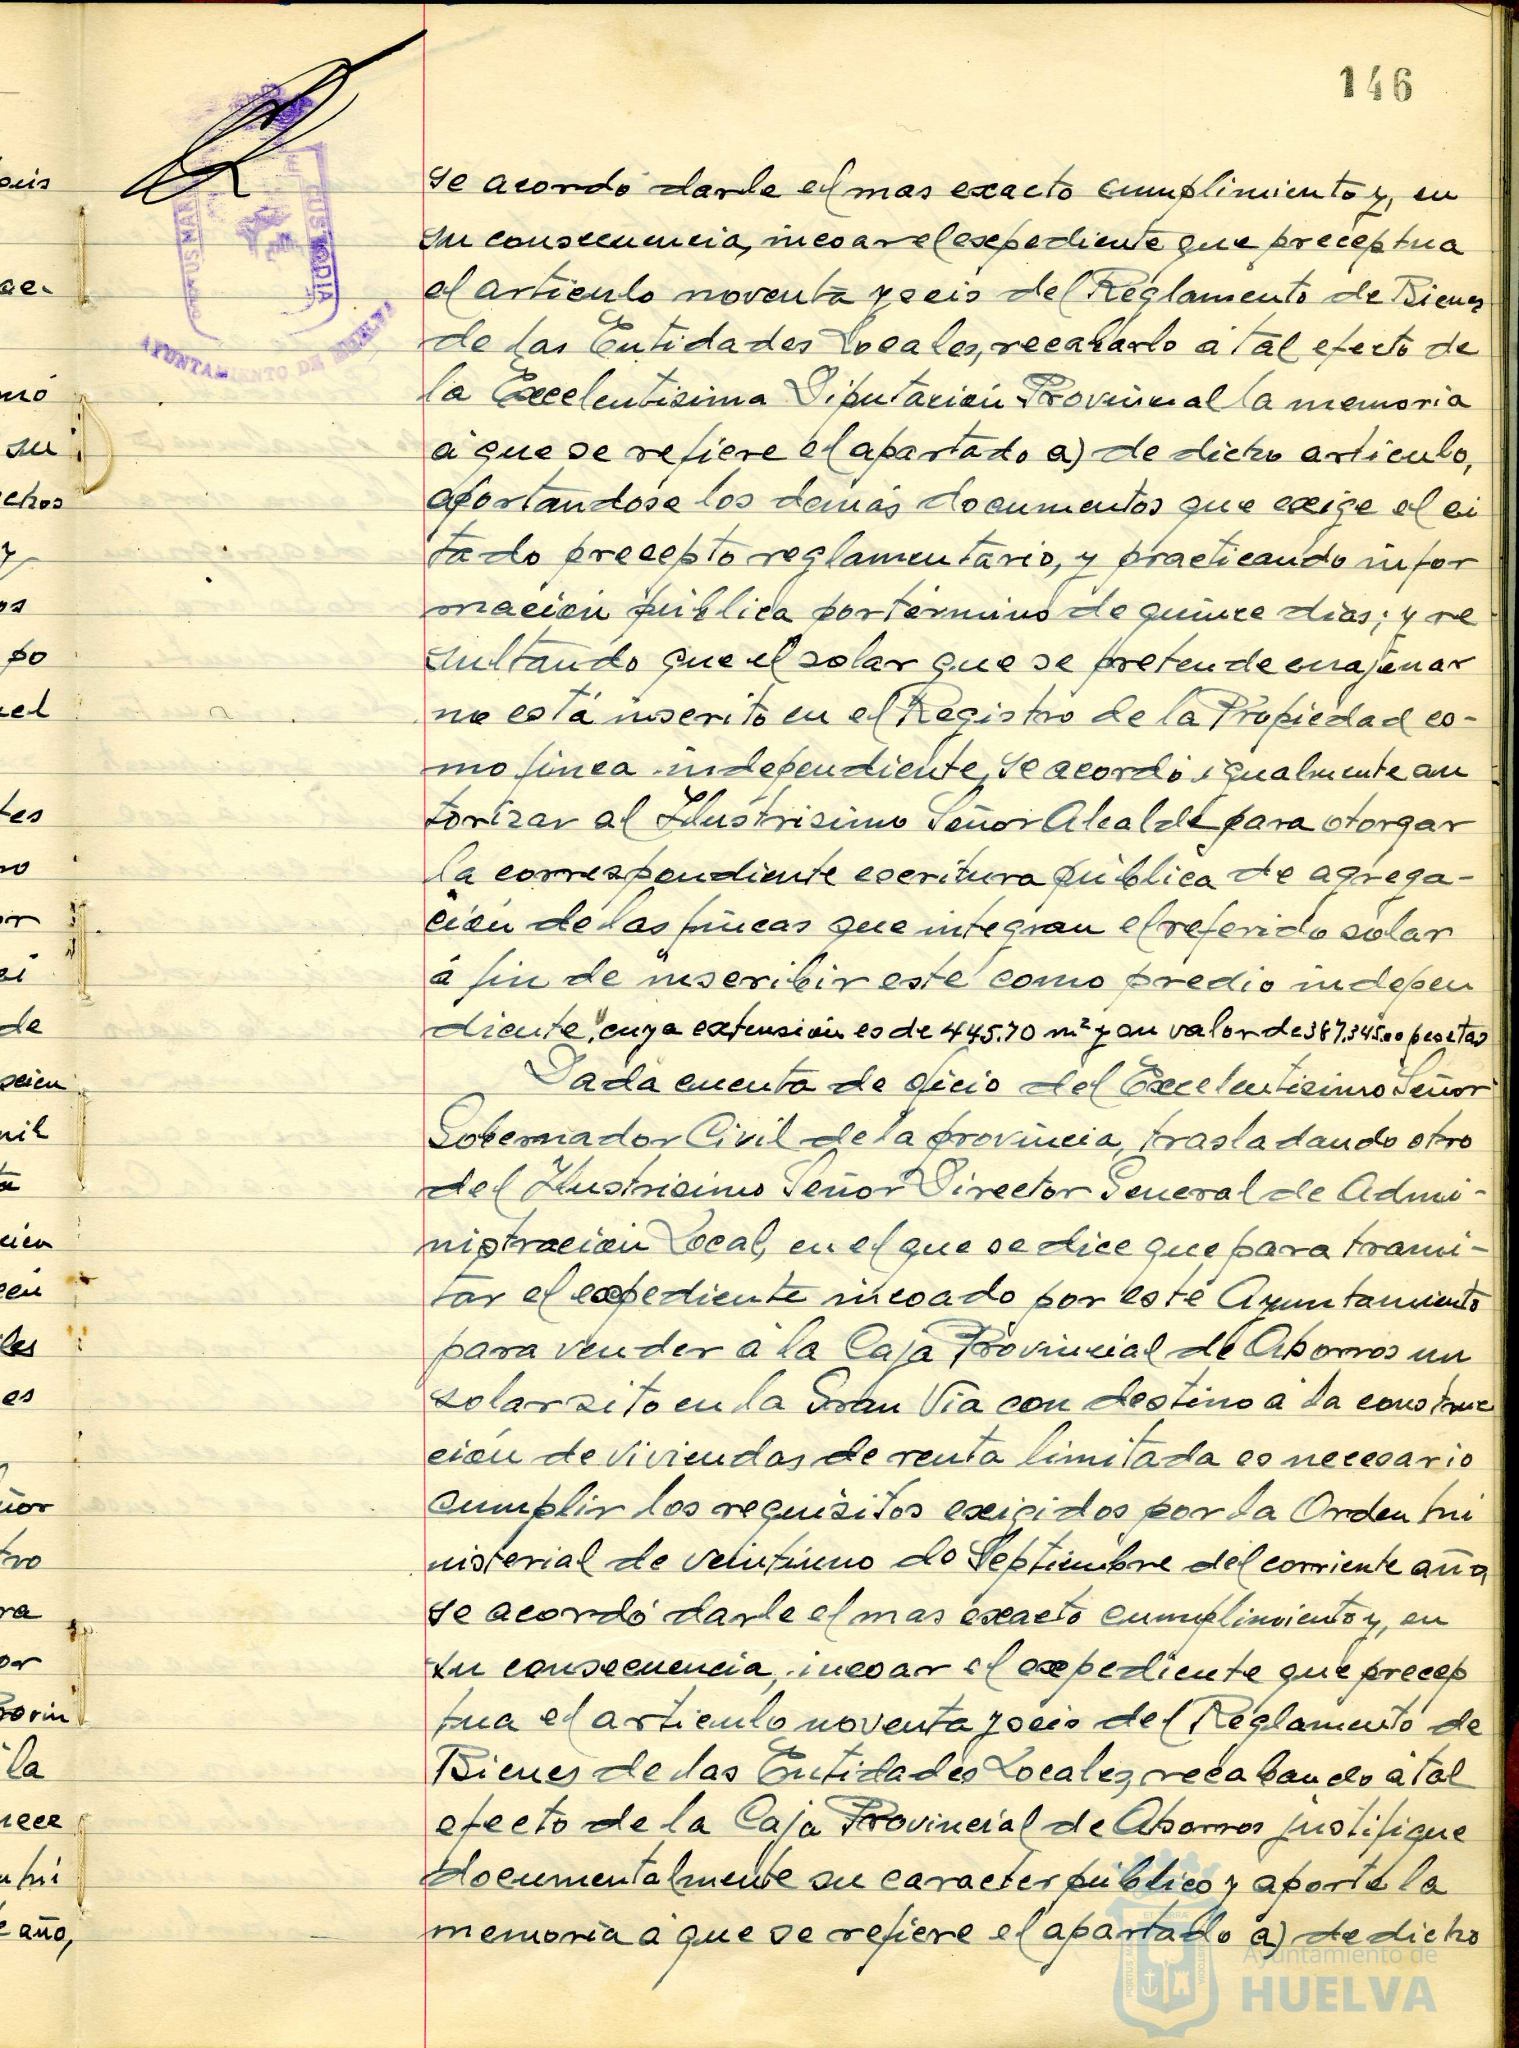 146
se acordó darle el mas exacto cumplimiento y, en
su consecuencia, incoar el expediente que preceptua
el articulo noventa y seis del Reglamento de Bienes
de las Entidades Locales, recabarlo á tal efecto de
la Excelentisima Diputación Provincial la memoria
á que se refiere el apartado a) de dicho articulo,
aportandose los demás documentos que exige el ci
tado precepto reglamentario, y practicando infor
mación pública por término de quince dias; y re
sultando que el solar que se pretende enajenar
no está inscrito en el Registro de la Propiedad co-
mo finca independiente, se acordó igualmente au
torizar al Ilustrisimo Señor Alcalde para otorgar
la correspondiente escritura pública de agrega-
ción de las fincas que integran el referido solar
á fin de inscribir este como predio indepen
diente, cuya extensión es de 445.70 m² y su valor de 387.345.00 pesetas
Dada cuenta de oficio del Excelentisimo Señor
Gobernador Civil de la provincia, trasladando otro
del Ilustrisimo Señor Director General de Admi-
nistración Local, en el que se dice que para trami-
tar el expediente incoado por este Ayuntamiento
para vender á la Caja Provincial de Ahorros un
solar sito en la Gran Vía con destino á la construc
ción de viviendas de renta limitada es necesario
cumplir los requisitos exigidos por la Orden Mi
nisterial de veintiuno de Septiembre del corriente año,
se acordó darle el mas exacto cumplimiento y, en
su consecuencia, incoar el expediente que precep
tua el articulo noventa y seis del Reglamento de
Bienes de las Entidades Locales, recabando á tal
efecto de la Caja Provincial de Ahorros justifique
documentalmente su caracter público y aporte la
memoria á que se refiere el apartado a) de dicho
CUSTODIA
AYUNTAMIENTO DE HUELVA
su
y
po
de
la
año,
Ayuntamiento de
HUELVA